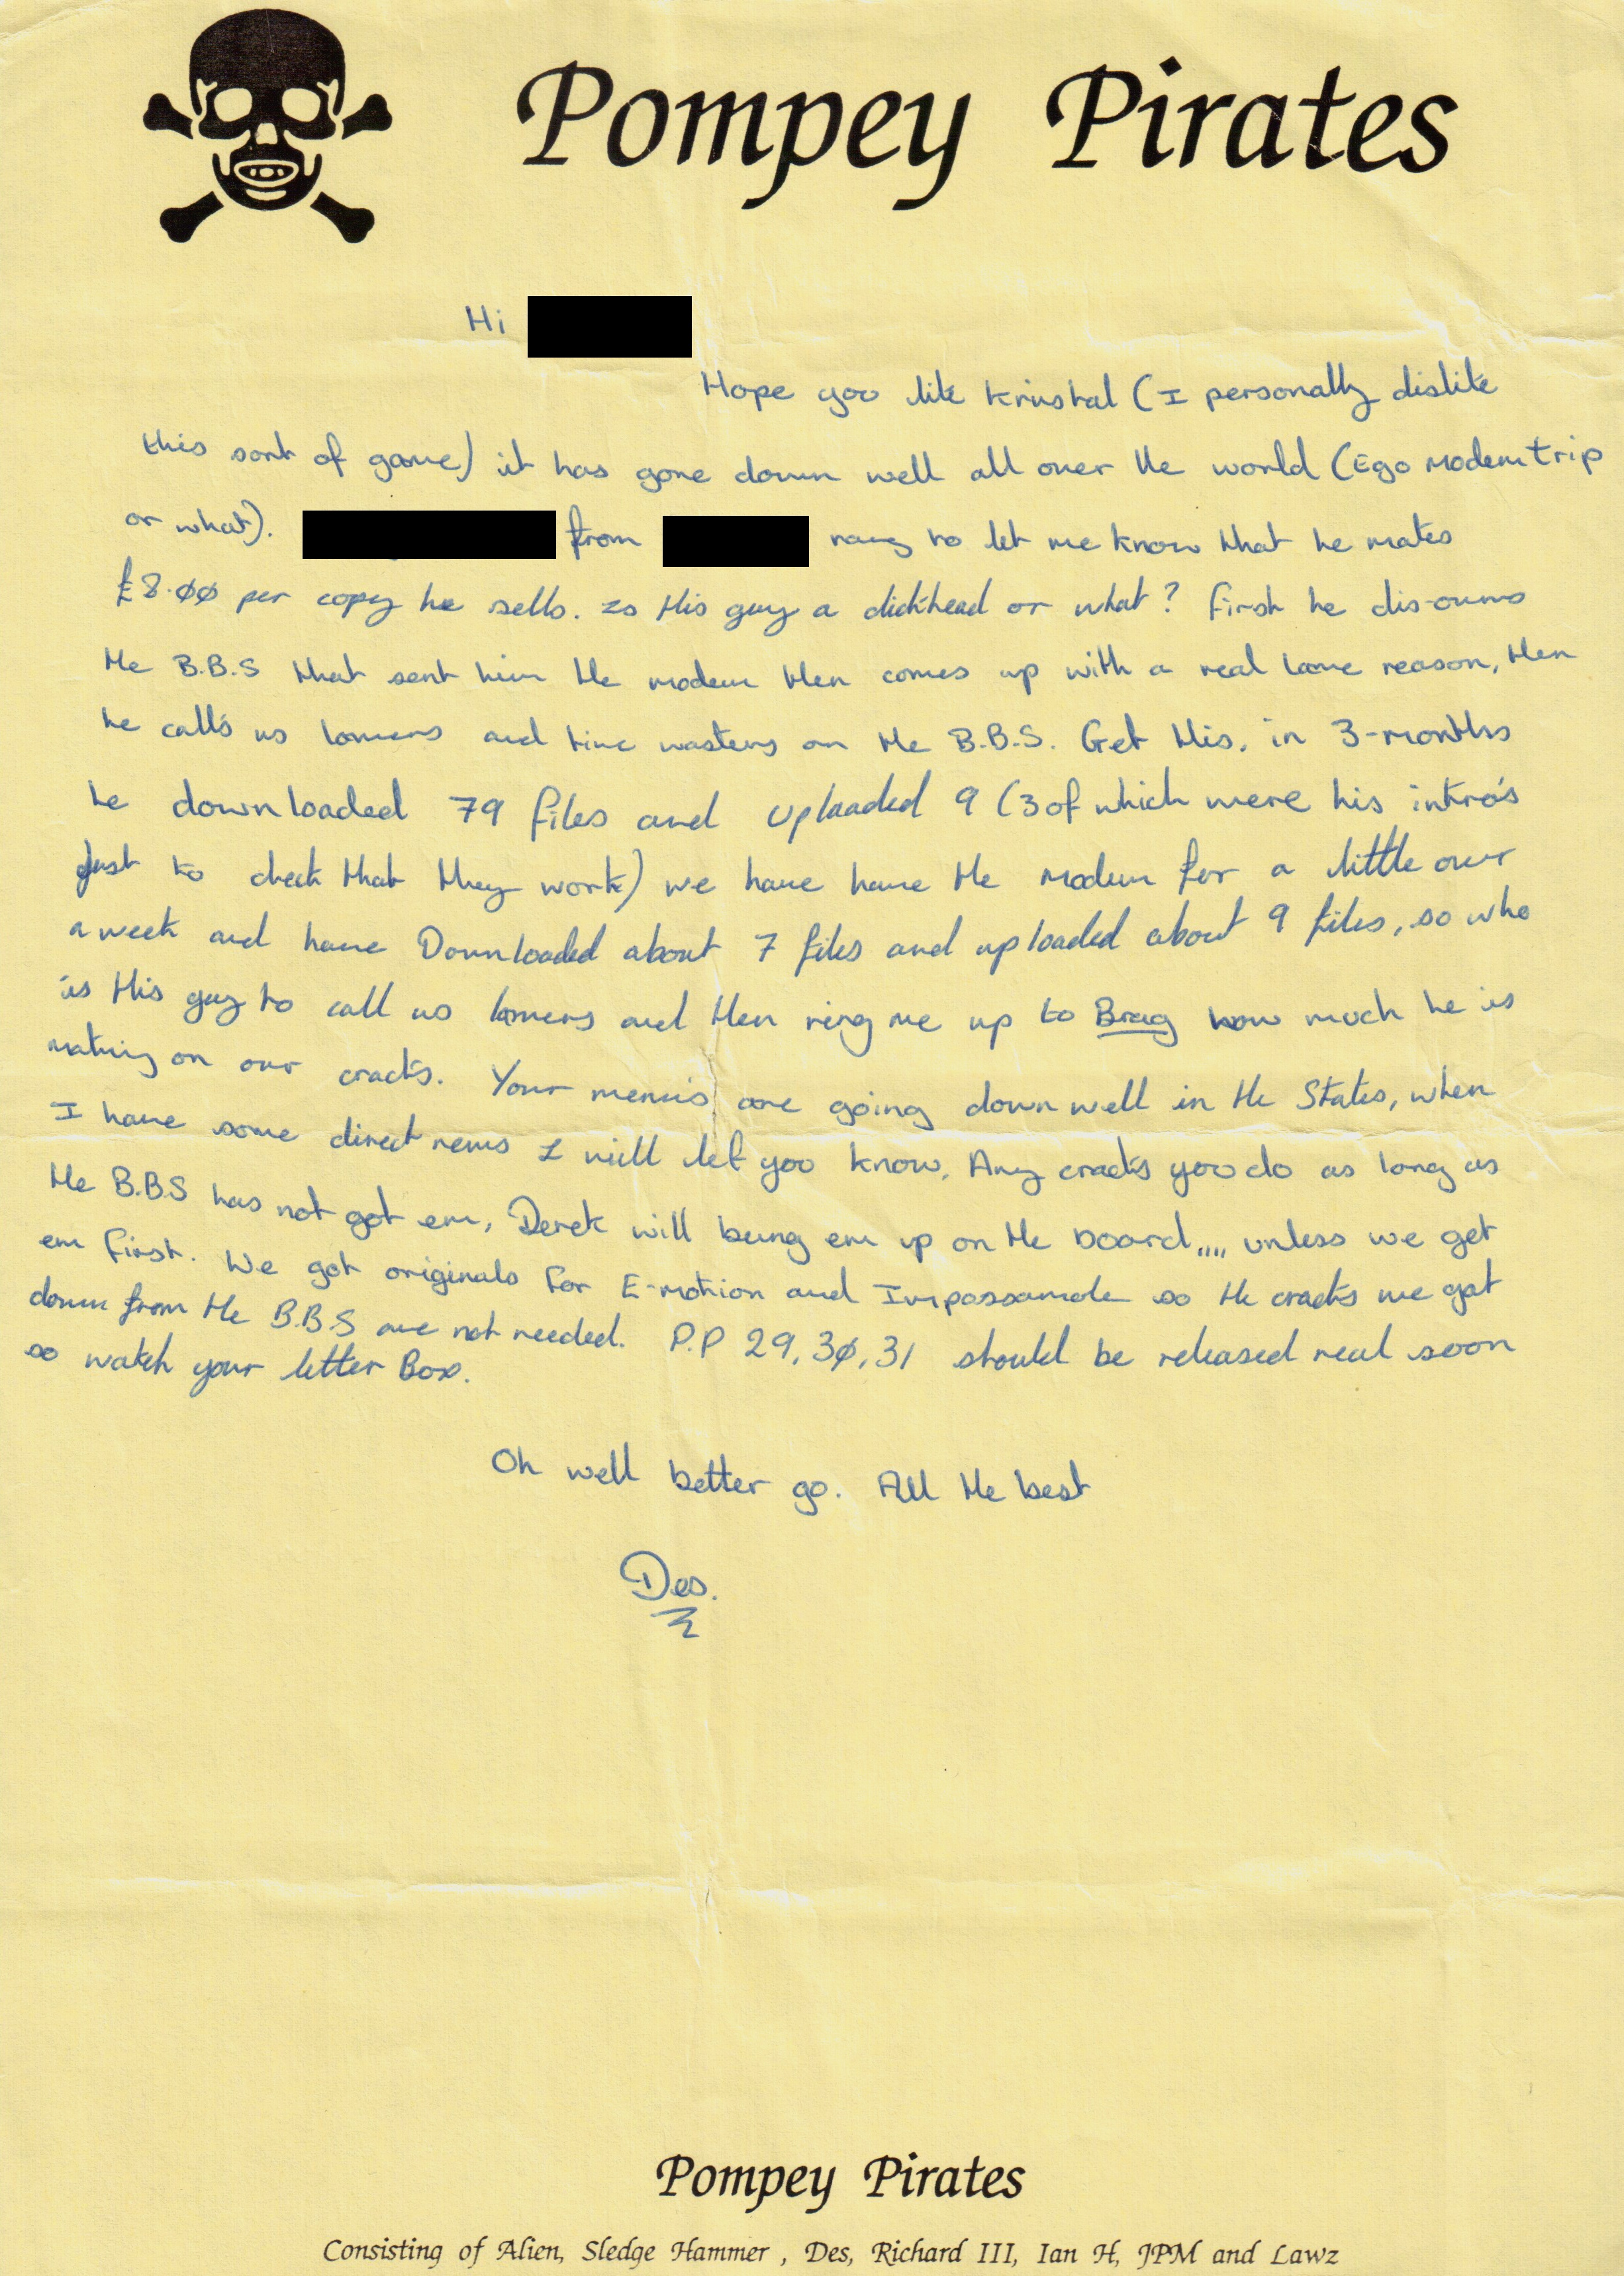 Pompey Pirates
Hi
Hope you like Kristal (I personally dislike
this sort of game) it has gone down well all over the world (Ego modem trip
or what). from rang to let me know that he makes
£8.00 per copy he sells. Is this guy a dickhead or what? First he dis-owns
the B.B.S that sent him the modem then comes up with a real lame reason, then
he calls us lamers and time wasters on the B.B.S. Get this, in 3-months
he downloaded 79 files and uploaded 9 (3 of which were his intro's
just to check that they work) we have have the modem for a little over
a week and have Downloaded about 7 files and uploaded about 9 files, so who
is this guy to call us lamers and then ring me up to Brag how much he is
making on our cracks. Your menus are going down well in the States, when
I have some direct news I will let you know. Any cracks you do as long as
the B.B.S has not got em, Derek will bung em up on the board,,,, unless we get
em first. We got originals for E-motion and so the cracks we got
down from the B.B.S are not needed. P.P 29, 30, 31 should be released real soon
so watch your letter Box.
Oh well better go. All the best
Des.
Pompey Pirates
Consisting of Alien, Sledge Hammer , Des, Richard III, Ian H, JPM and Lawz